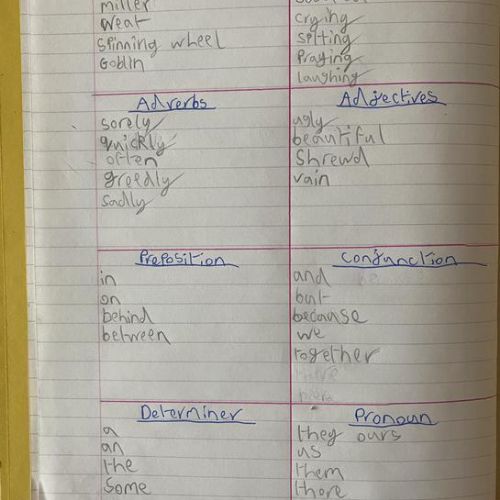 miller
weat
spinning wheel
Goblin
crying
spitting
Praying
laughing
Adverbs
sorely
quickly
often
greedly
sadly
Adjectives
ugly
beautiful
Shrewd
vain
Preposition
in
on
behind
between
Conjunction
and
but
because
we
together
Determiner
a
an
the
Some
Pronoun
they ours
us
them